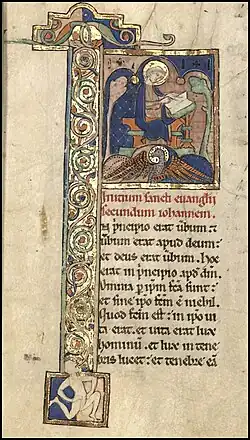 Initium sancti evangelii
secundum iohannem.
N principio erat verbum: et
verbum erat apud deum:
et deus erat verbum. hoc
erat in principio apd dm.
Omnia p ipm fca sunt:
et sine ipo fcm e nichil.
Quod fcm est: in ipo vi
ta erat. et vita erat lux
hominum. et lux in tene
bris lucet: et tenebre ea